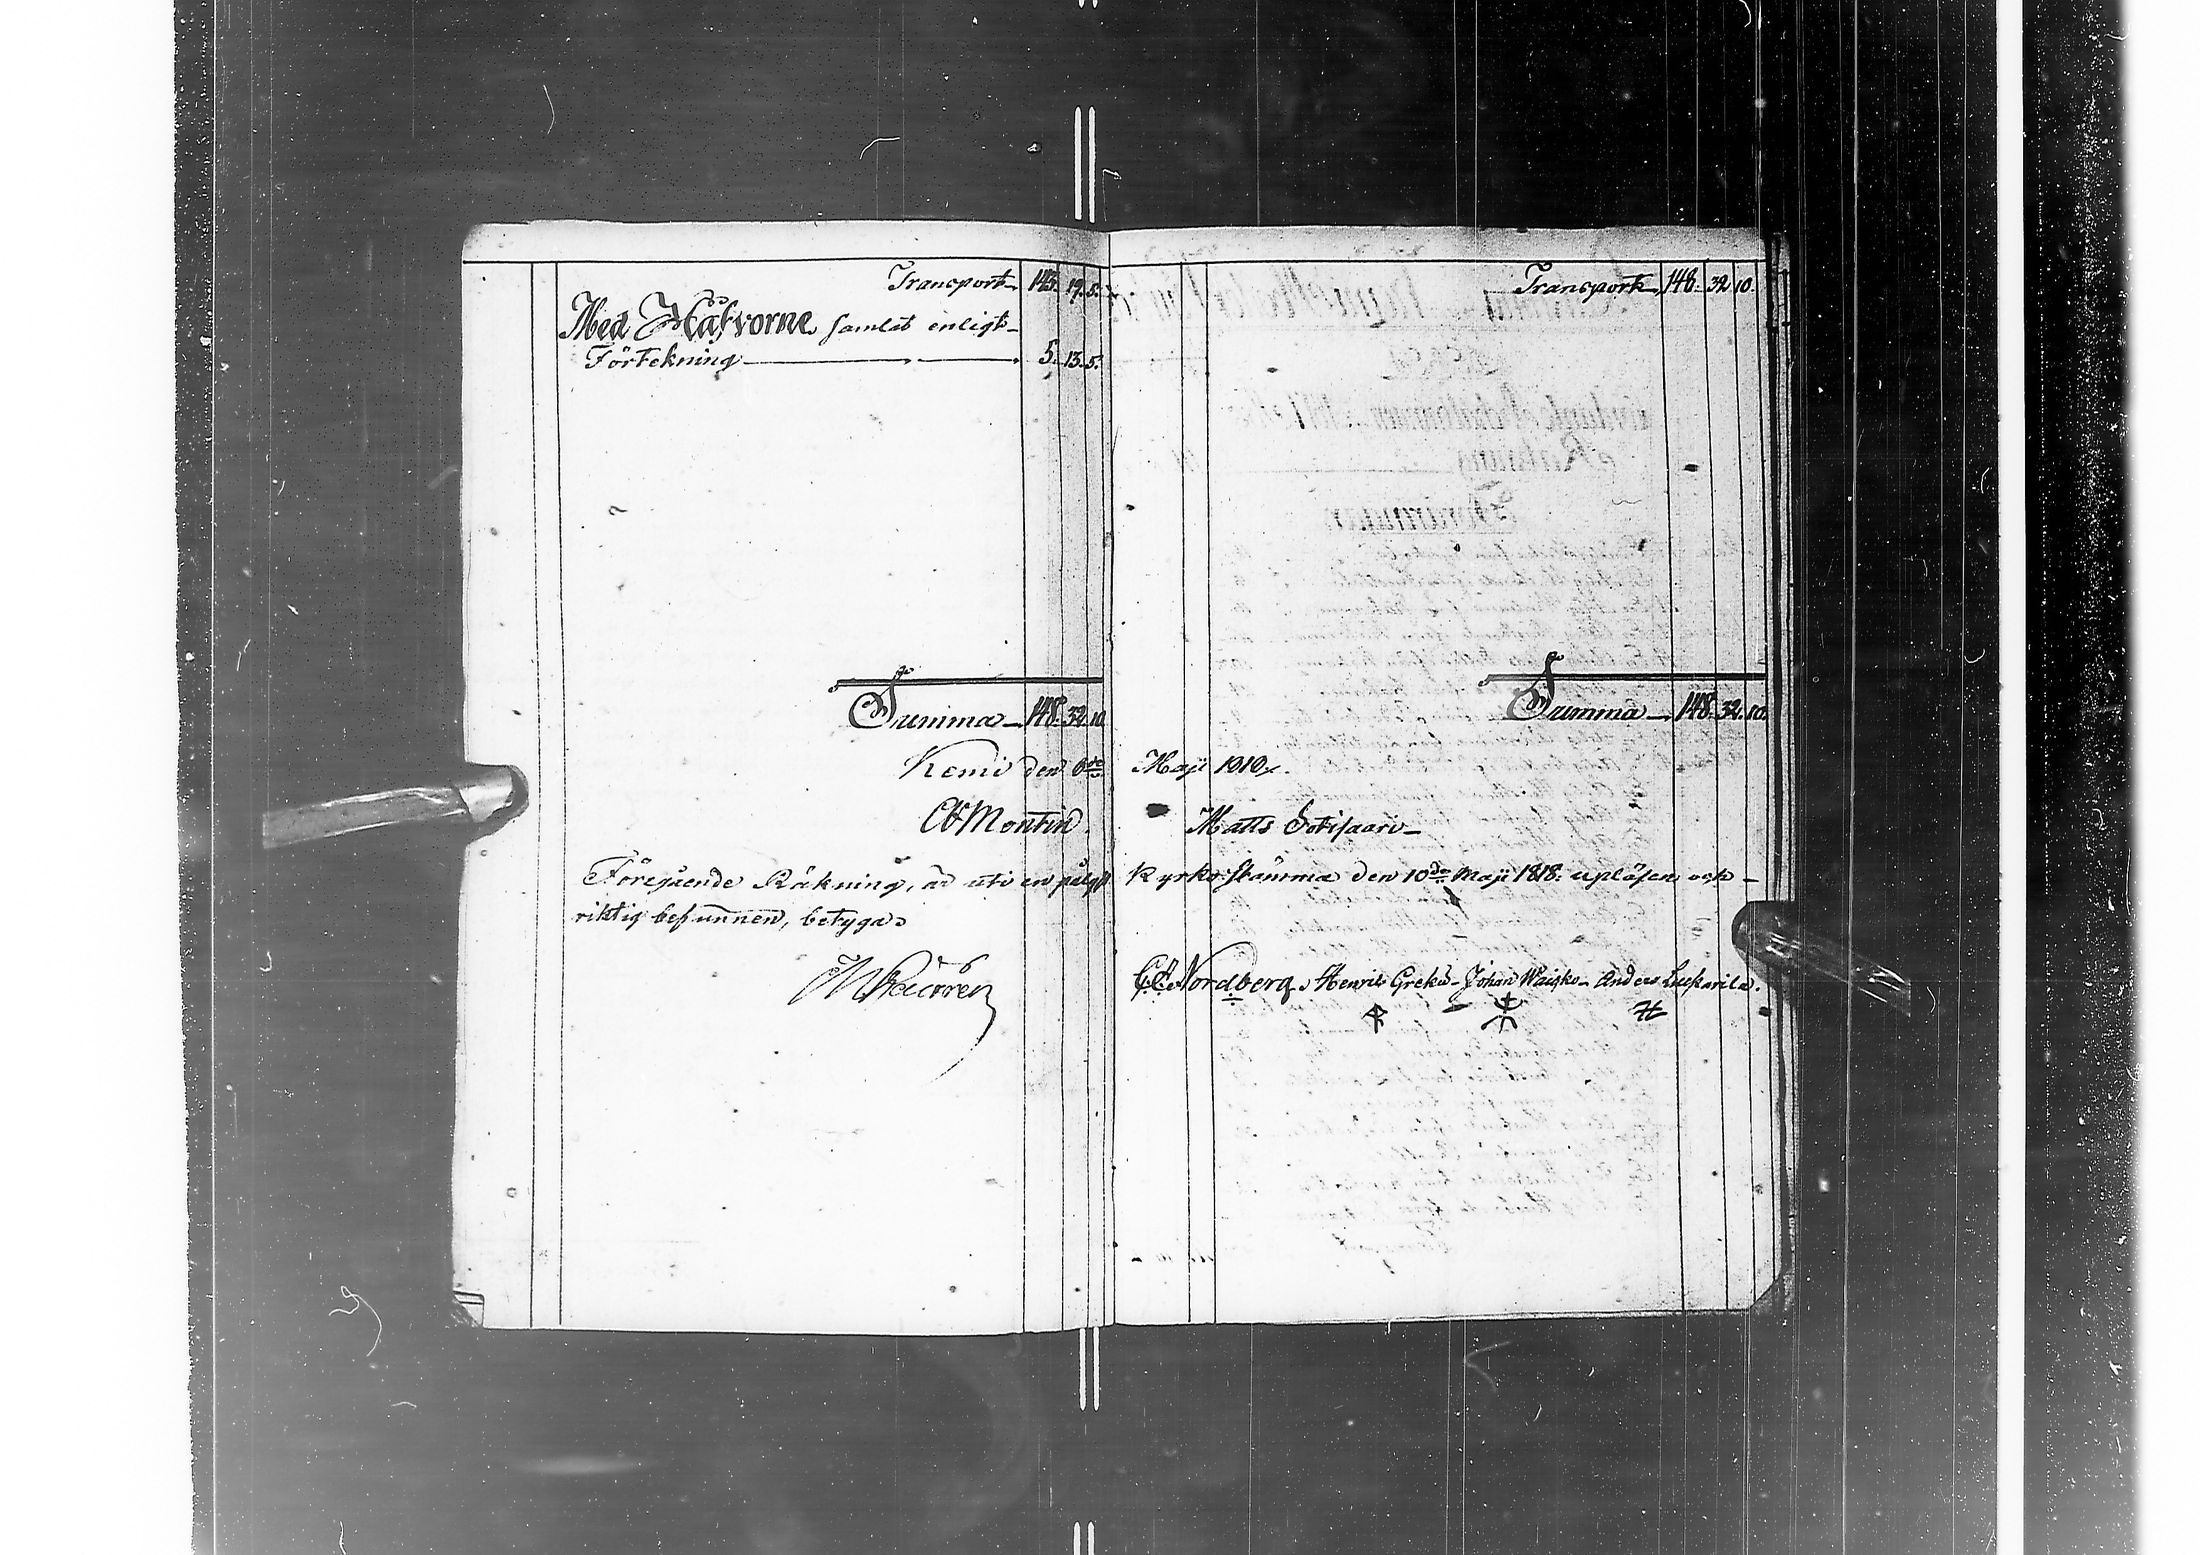 Transport 143. 19. 5.
Med Håfvorne samlat enligt
Förtekning 5. 13. 5.
Summa 148. 32. 10.
Kemi den 6de
Montin
Föregående Räkning, är uti en pålyst
riktig befunnen, betygar
Transport 148. 32 10.
Summa 148. 32. 10.
Maji 1818.
Matts Sotisaari
Kyrko stämma den 10de Maji 1818. upläsen och
Nordberg, Henric Greku Johan Waisko Anders